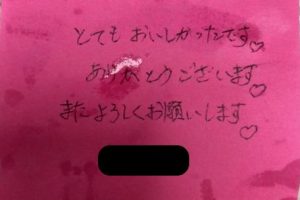 とても おいしかったです♡
ありがとうございます♡
またよろしくお願いします♡